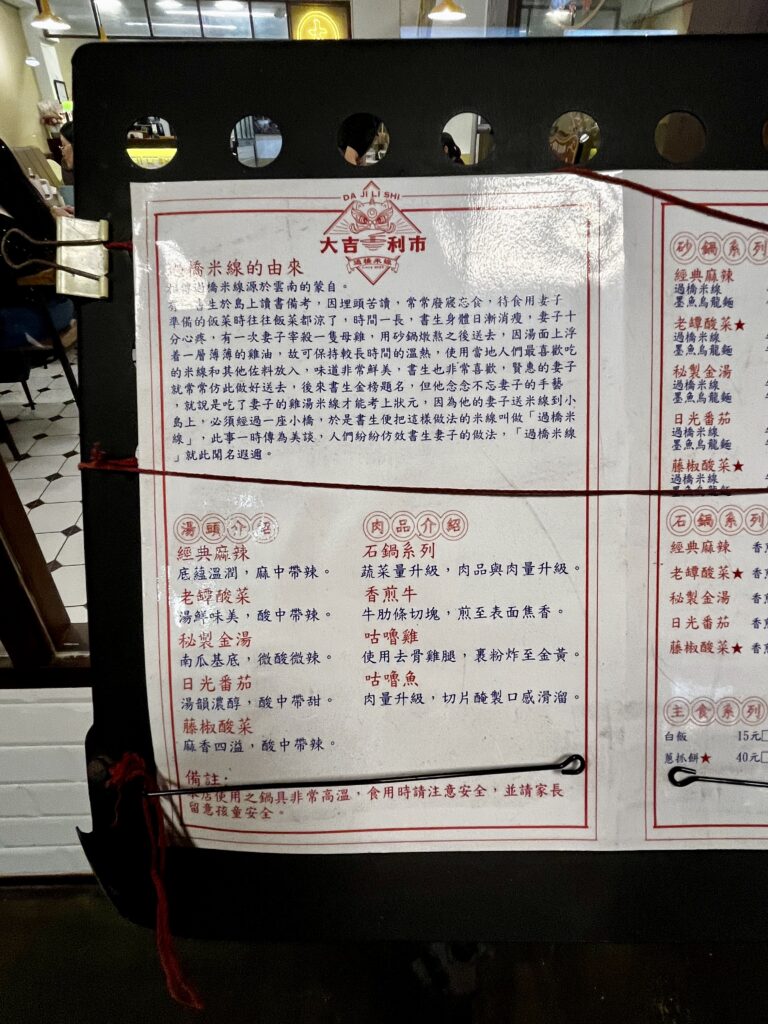 DA JI LI SHI
大吉利市
過橋米線
橋米線的由來
傳過橋米線源於雲南的蒙自。
書生於島上讀書備考，因埋頭苦讀，常常廢寢忘食，待食用妻子
準備的飯菜時往往飯菜都涼了，時間一長，書生身體日漸消瘦，妻子十
分心疼，有一次妻子宰殺一隻母雞，用砂鍋燉熬之後送去，因湯面上浮
着一層薄薄的雞油，故可保持較長時間的溫熱，使用當地人們最喜歡吃
的米線和其他佐料放入，味道非常鮮美，書生也非常喜歡，賢惠的妻子
就常常仿此做好送去，後來書生金榜題名，但他念念不忘妻子的手藝
，就說是吃了妻子的雞湯米線才能考上狀元，因為他的妻子送米線到小
島上，必須經過一座小橋，於是書生便把這樣做法的米線叫做「過橋米
線」，此事一時傳為美談，人們紛紛仿效書生妻子的做法，「過橋米線
」就此聞名遐邇。
湯頭介紹
經典麻辣
底蘊溫潤，麻中帶辣。
老罈酸菜
湯鮮味美，酸中帶辣。
秘製金湯
南瓜基底，微酸微辣。
日光番茄
湯韻濃醇，酸中帶甜。
藤椒酸菜
麻香四溢，酸中帶辣。
肉品介紹
石鍋系列
蔬菜量升級，肉品與肉量升級。
香煎牛
牛肋條切塊，煎至表面焦香。
咕嚕雞
使用去骨雞腿，裹粉炸至金黃。
咕嚕魚
肉量升級，切片醃製口感滑溜。
備註：
本店使用之鍋具非常高溫，食用時請注意安全，並請家長
留意孩童安全。
砂鍋系列
經典麻辣
過橋米線
墨魚烏龍麵
老罈酸菜★
過橋米線
墨魚烏龍麵
秘製金湯
過橋米線
墨魚烏龍麵
日光番茄
過橋米線
墨魚烏龍麵
藤椒酸菜★
過橋米線
墨魚烏龍麵
石鍋系列
經典麻辣 香
老罈酸菜★ 香
秘製金湯 香
日光番茄 香
藤椒酸菜★ 香
主食系列
白飯 15元
蔥抓餅★ 40元